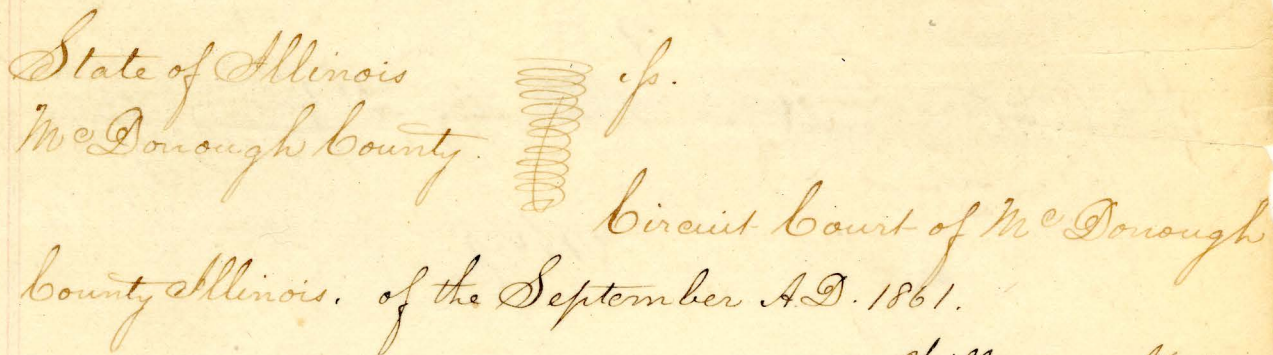 State of Illinois ss.
McDonough County.
Circuit Court of McDonough
County Illinois. of the September A.D. 1861.